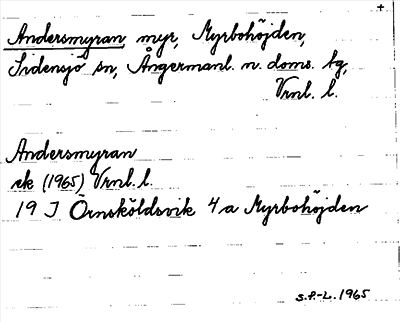 +
Andersmyran myr, Myrbohöjden,
Sidensjö sn, Ångermanl. n. doms. tg,
Vrnl. l.
Andersmyran
ek (1965) Vrnl. l.
19 J Örnsköldsvik 4 a Myrbohöjden
S.P.-L. 1965